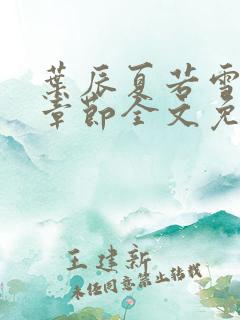 葉辰夏若雪
章節全文免
王建新
未经同意禁止转载